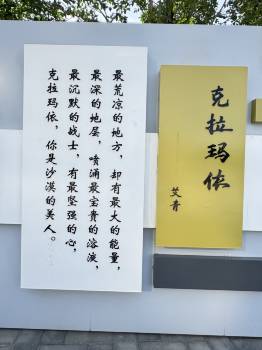 克拉玛依
艾青
最荒凉的地方，却有最大的能量，
最深的地层，喷涌最宝贵的溶液，
最沉默的战士，有最坚强的心，
克拉玛依，你是沙漠的美人。